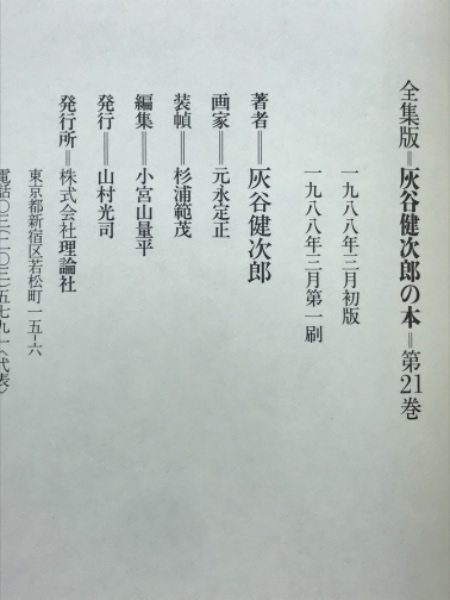 全集版=灰谷健次郎の本=第21巻
一九八八年三月初版
一九八八年三月第一刷
著者=灰谷健次郎
画家=元永定正
装幀=杉浦範茂
編集=小宮山量平
発行=山村光司
発行所=株式会社理論社
東京都新宿区若松町一五-六
電話〇三(二〇三)五七九一〈代表〉